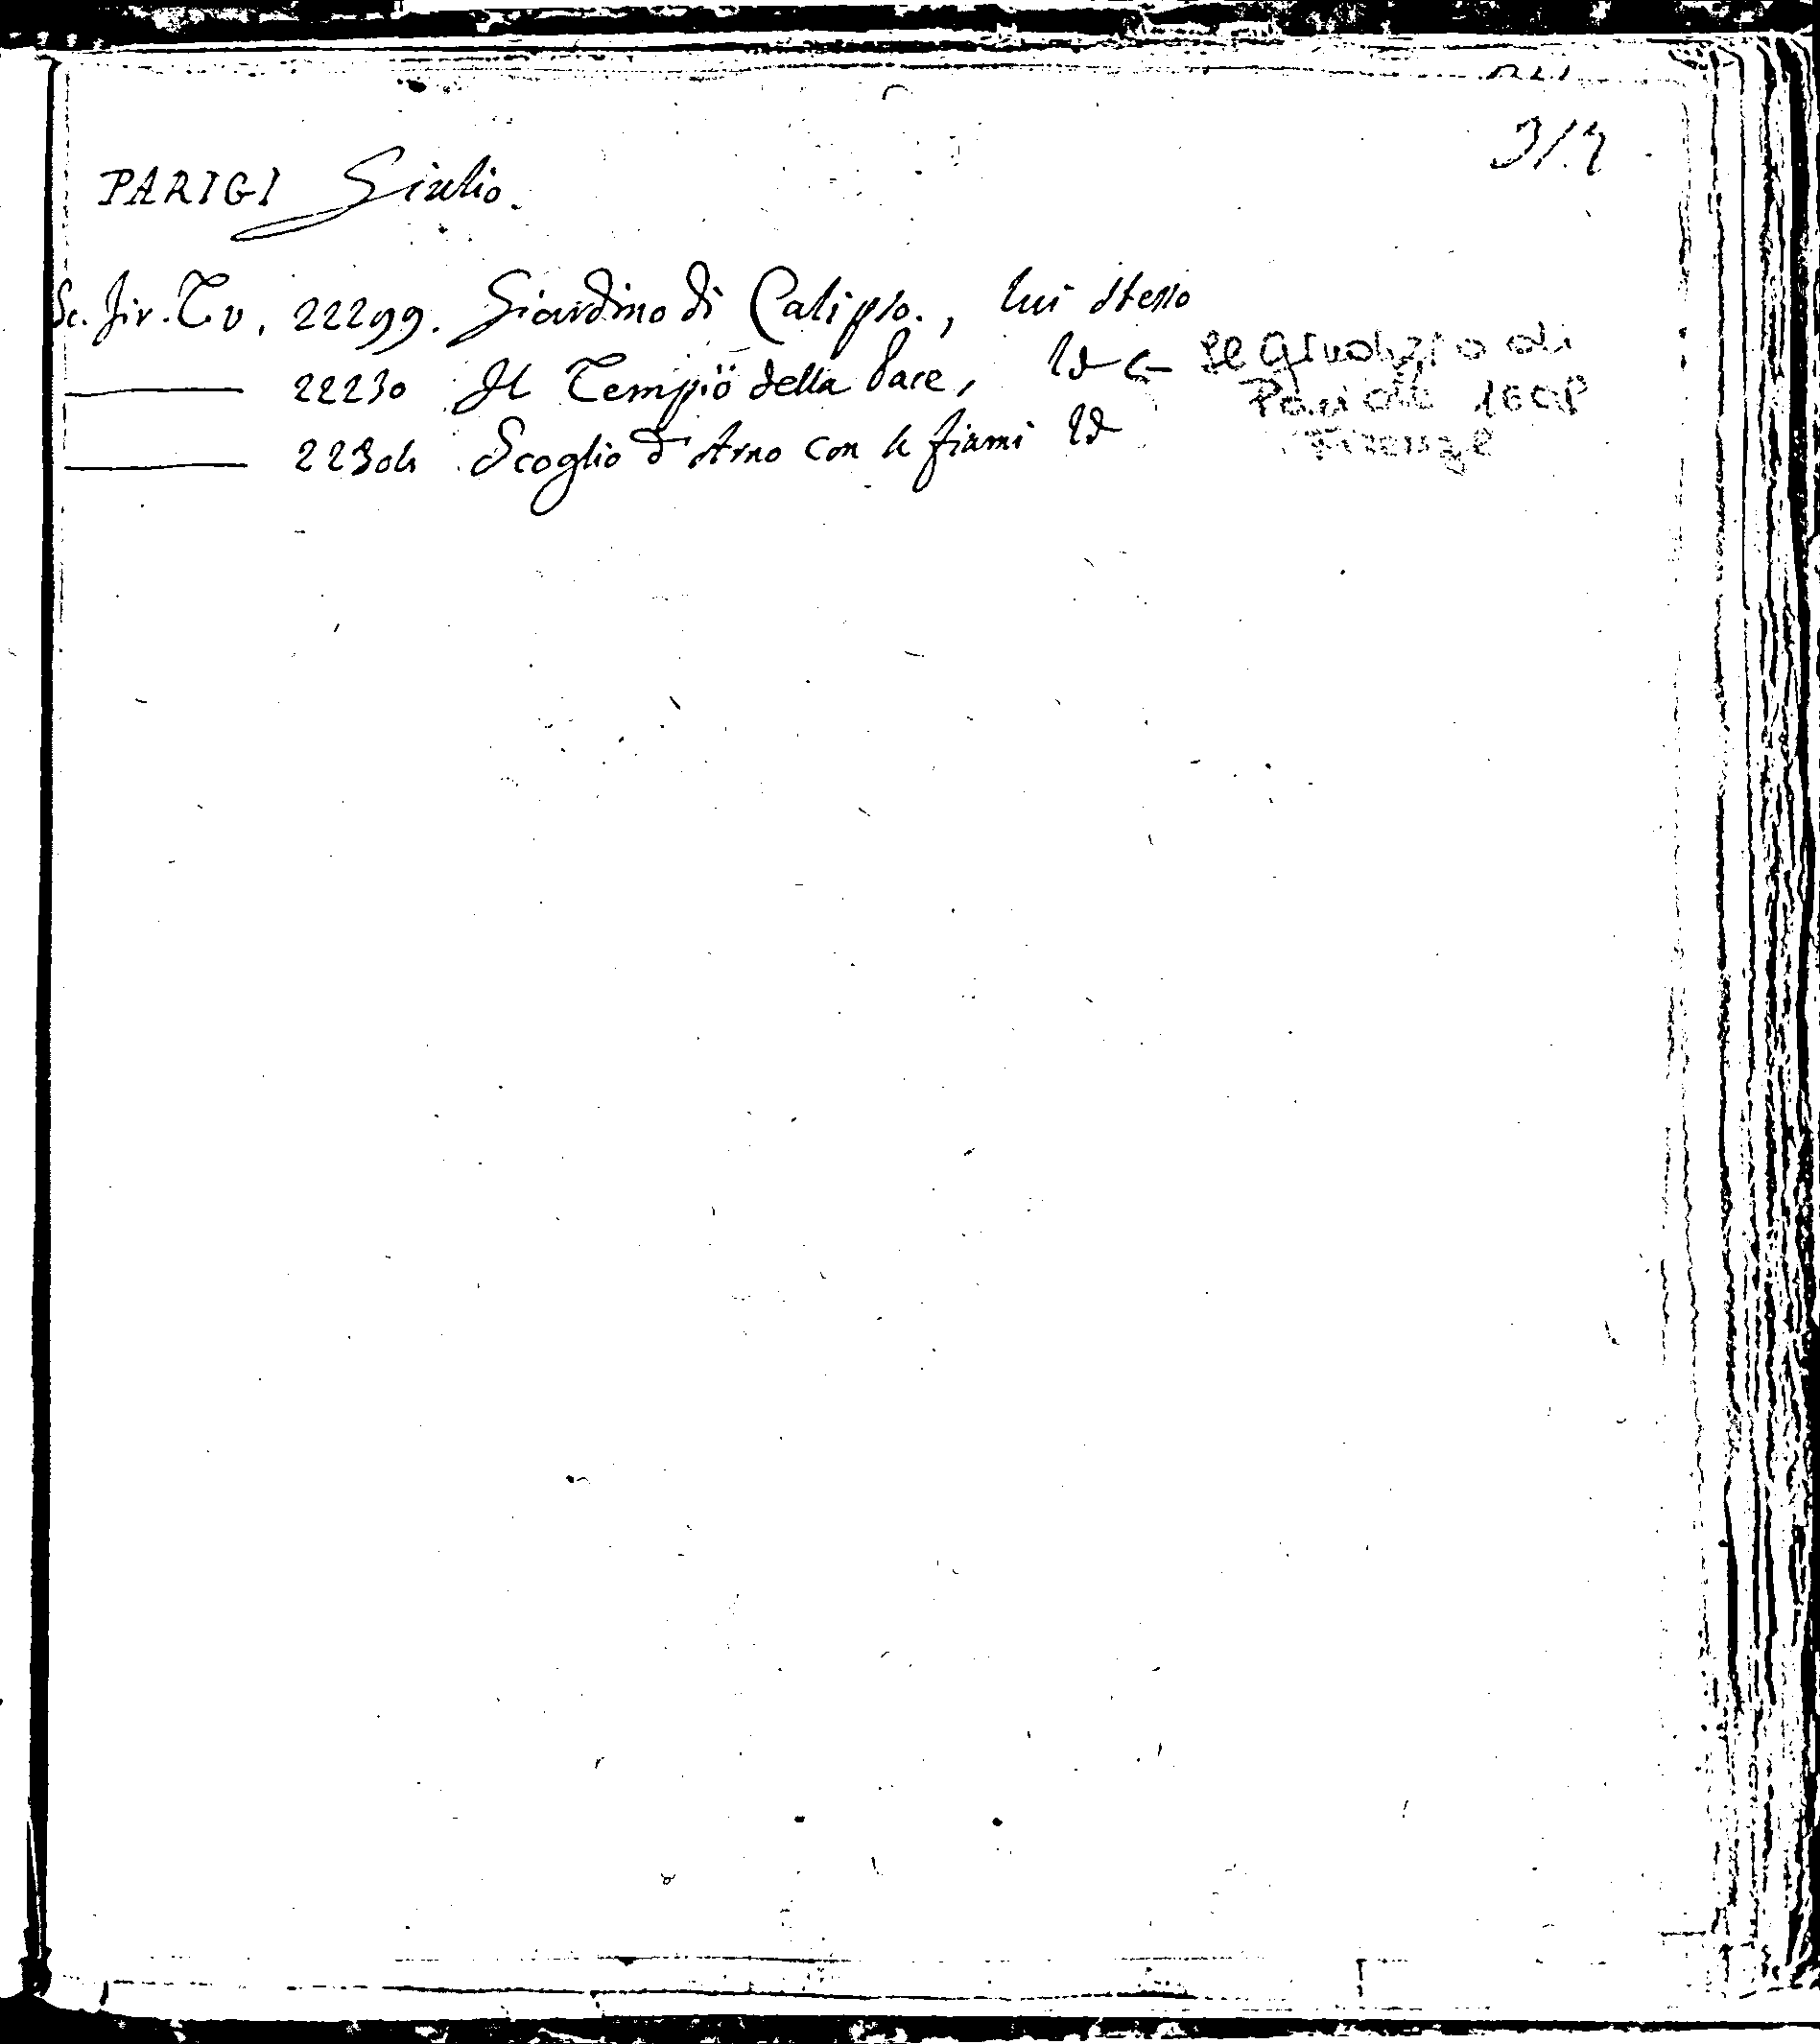 PARIGI Giulio.
Sc. fir. T. v. 22299. Giardino di Calipso., lui stesso
22230 Il Tempio della Pace, Id ← Il Giudizio di
Paride 1608
Firenze
2230 Scoglio d'Arno con le fiumi Id